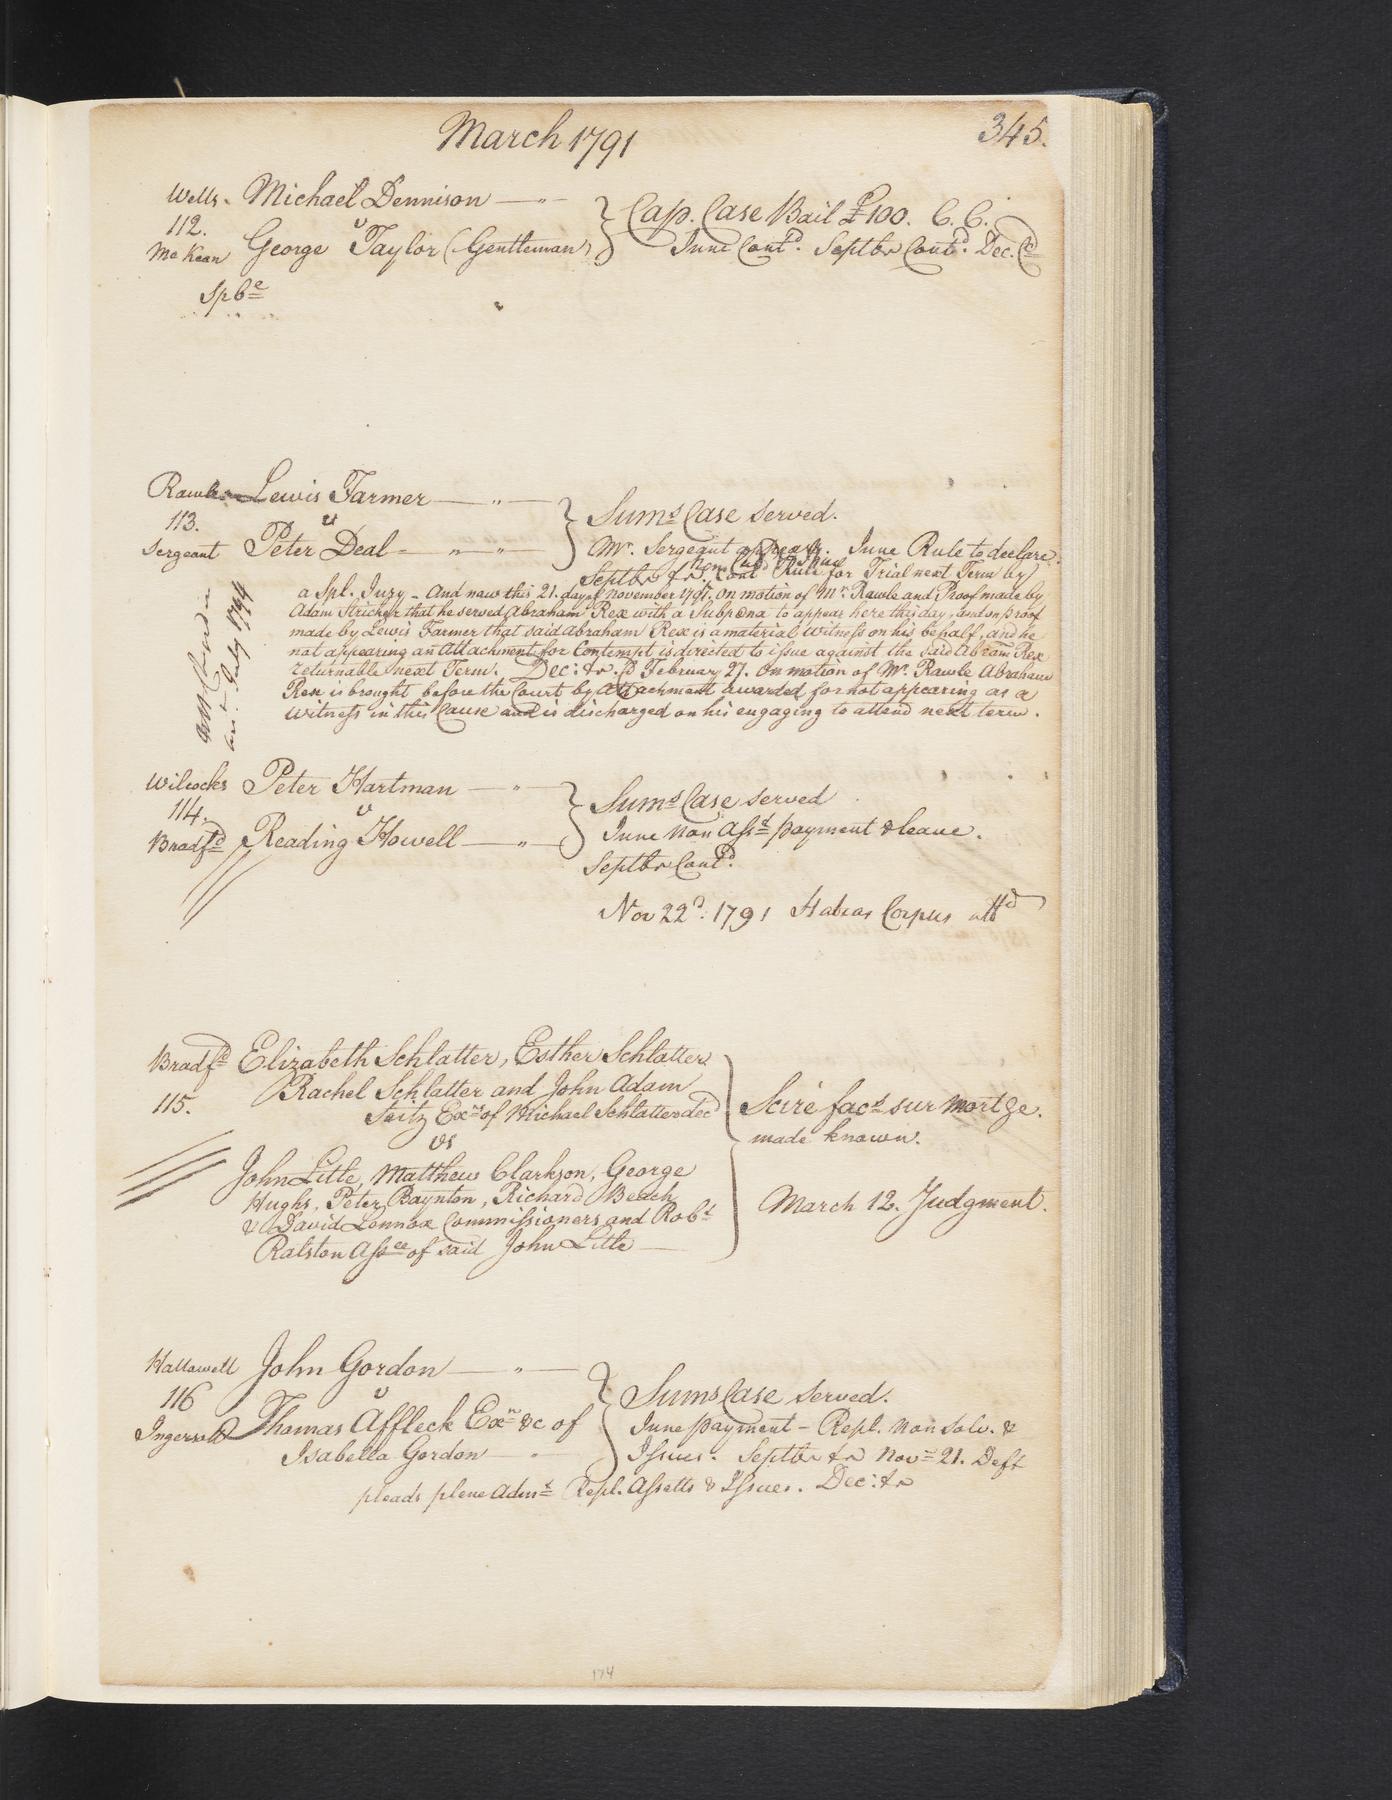 345.
March 1791
Wells. Michael Dennison — " — } Cap. Case Bail £100. C. C.
112. v
McKean George Taylor (Gentleman) June Contd. Septbr Contd. Dec. Cd
Spbe
Rawle Lewis Farmer — " — } Sums Case Served.
113. v
Sergeant Peter Deal — " — " — Mr. Sergeant appears. June Rule to declare.
Septbr &r. Contd Rule for Trial next Term by
a Spl. Jury – And now this 21. day of November 1791. on motion of Mr. Rawle and Proof made by
Adam Stricker that he served Abraham Rex with a Subpœna to appear here this day, and on proof
made by Lewis Farmer that said Abraham Rex is a material Witness on his behalf, and he
not appearing an Attachment for Contempt is directed to issue against the said Abram Rex
returnable next Term. Dec: &r. February 27. On motion of Mr. Rawle Abraham
Rex is brought before the Court by Attachment awarded for not appearing as a
Witness in this Cause and is discharged on his engaging to attend next term.
July 1794
Wilcocks Peter Hartman — " — } Sums Case Served
114. v
Bradfd Reading Howell — " — June non Asst payment & leave.
Septbr Contd.
Nov 22d. 1791 Habeas Corpus alld
Bradfd Elizabeth Schlatter, Esther Schlatter
115. Rachel Schlatter and John Adam
Seitz Exrs of Michael Schlatter decd } Scire facs sur Mortge.
vs made known.
John Litle, Matthew Clarkson, George
Hughs, Peter Baynton, Richard Beach
& David Lennox Commissioners and Robt March 12. Judgment.
Ralston Assee of said John Litle —
Hallowell John Gordon — " — } Sums Case Served.
116 v
Ingersoll Thomas Affleck Exr &c of June payment – Repl. Non Solv. &
Isabella Gordon — " Issues. Septbr &r Nov= 21. Deft
pleads plene Admt Repl. Assetts & Issues. Dec: &r
174